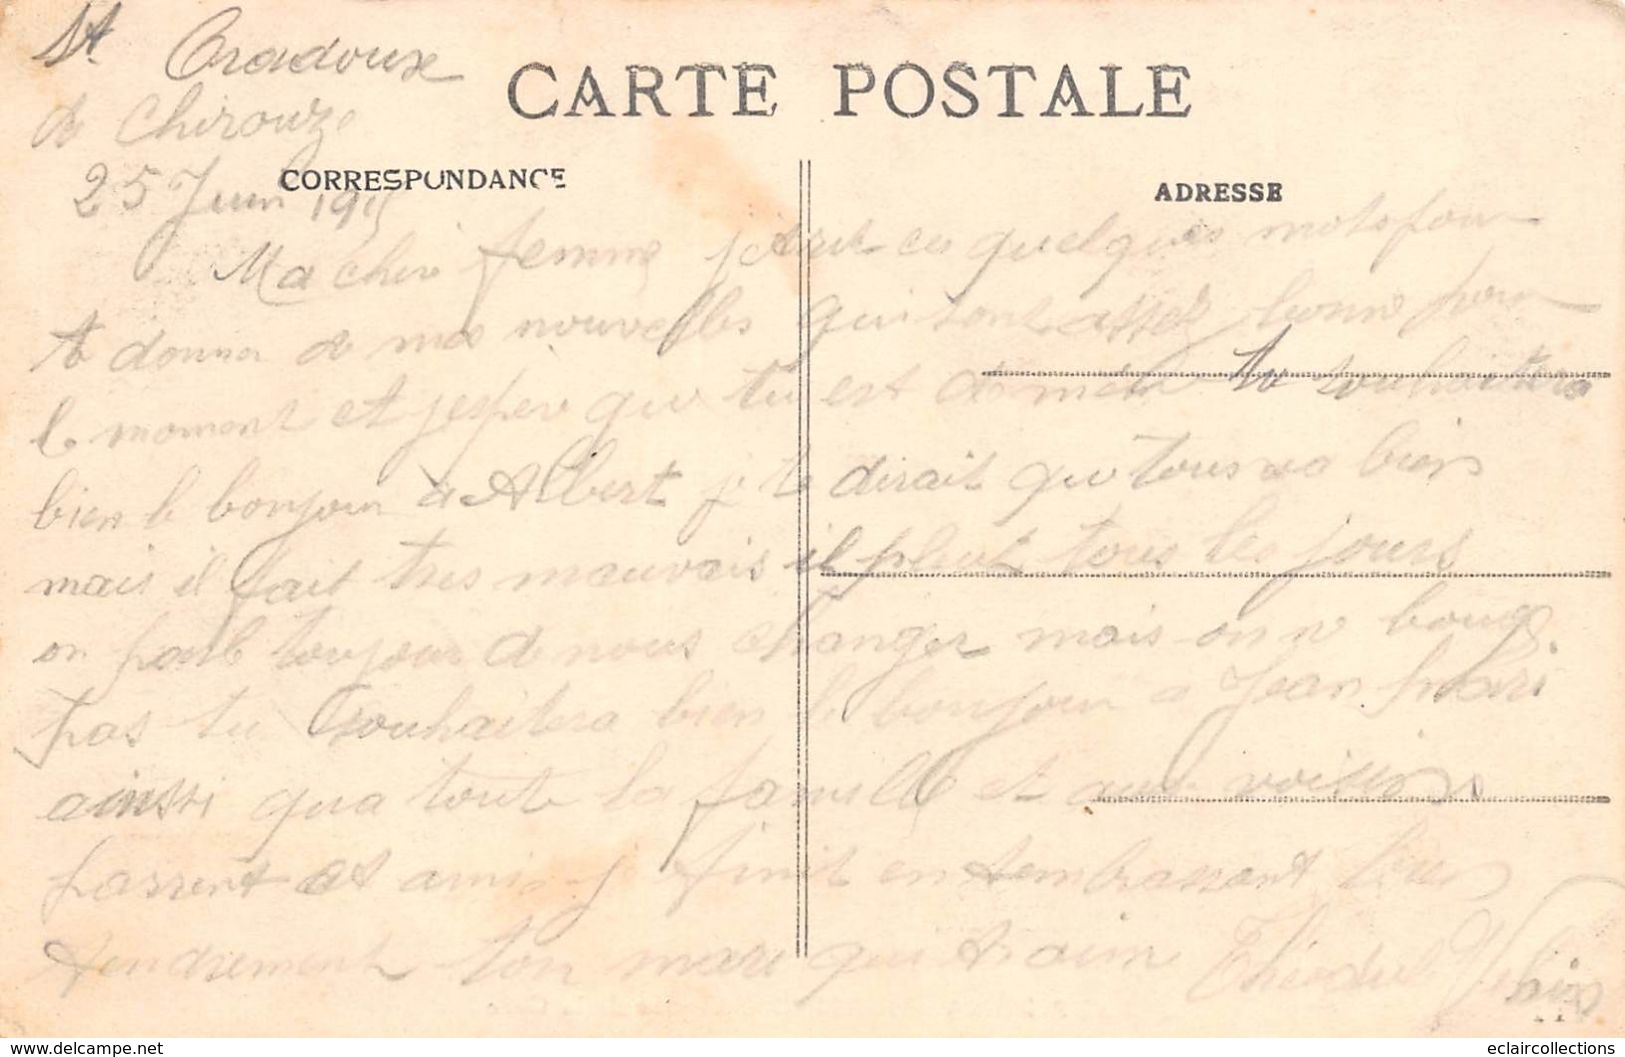 St Oradoux
de Chirouze
CARTE POSTALE
CORRESPONDANCE
ADRESSE
25 Juin 1915
Ma cher femme jécrit ces quelques mots pour
te donner de mes nouvelles qui sont assez bonne pour
le moment et jesper que tu est de même tu souhaitera
bien le bonjour à Albert je te dirait que tous va bien
mais il fait tres mauvais il pleut tous les jours
on parle toujour de nous changer mais on ne bouge
pas tu souhaitera bien le bonjour a Jean
ainssi qua toute la famille et aux voisins
parrent et amis je finit en tembrassant bien
tendrement ton mari qui taime
www.delcampe.net
eclaircollections